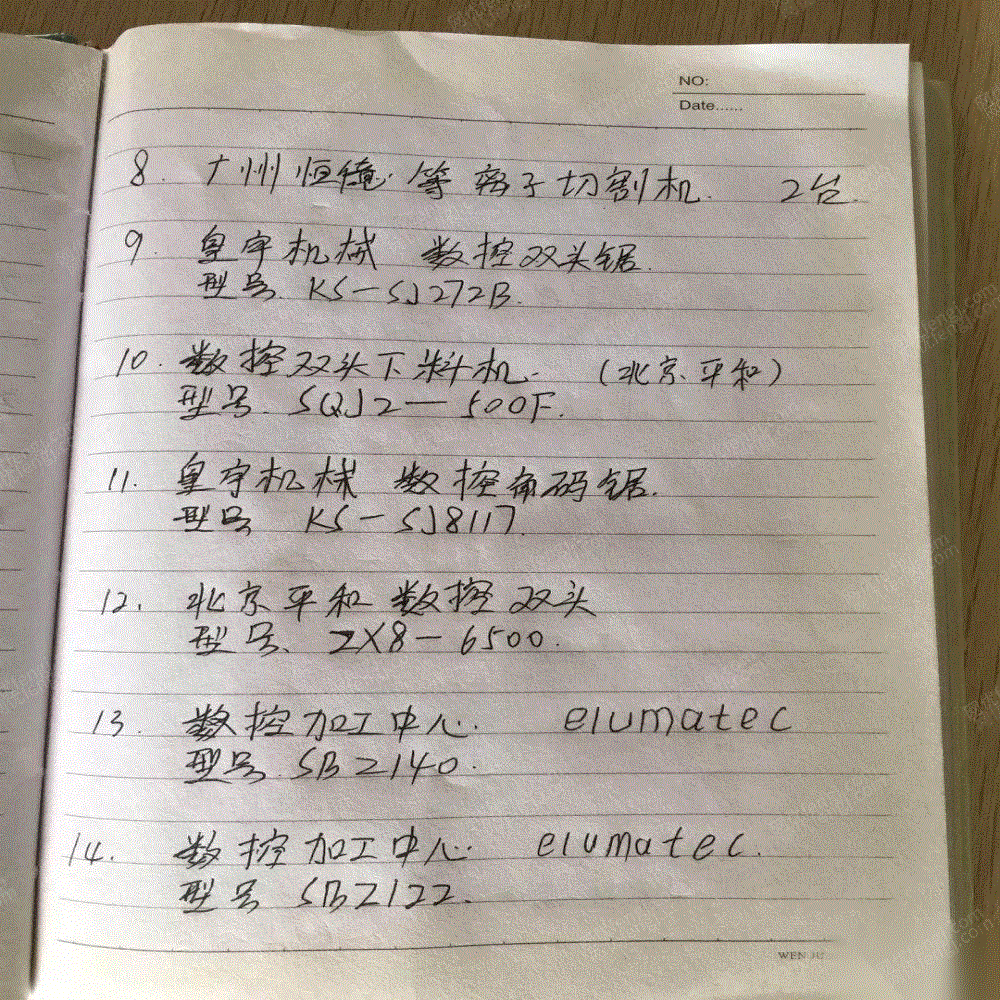 NO:
Date......
8. 广州恒 等离子切割机. 2台.
9. 皇宇机械 数控双头锯.
型号. KS-SJ272B.
10. 数控双头下料机. (北京平和)
型号. SQJ2-500F.
11. 皇宇机械 数控角码锯.
型号 KS-SJ8117.
12. 北京平和 数控双头
型号. ZX8-6500.
13. 数控加工中心. elumatec
型号. SBZ140.
14. 数控加工中心. elumatec.
型号 SBZ122.
WEN JU